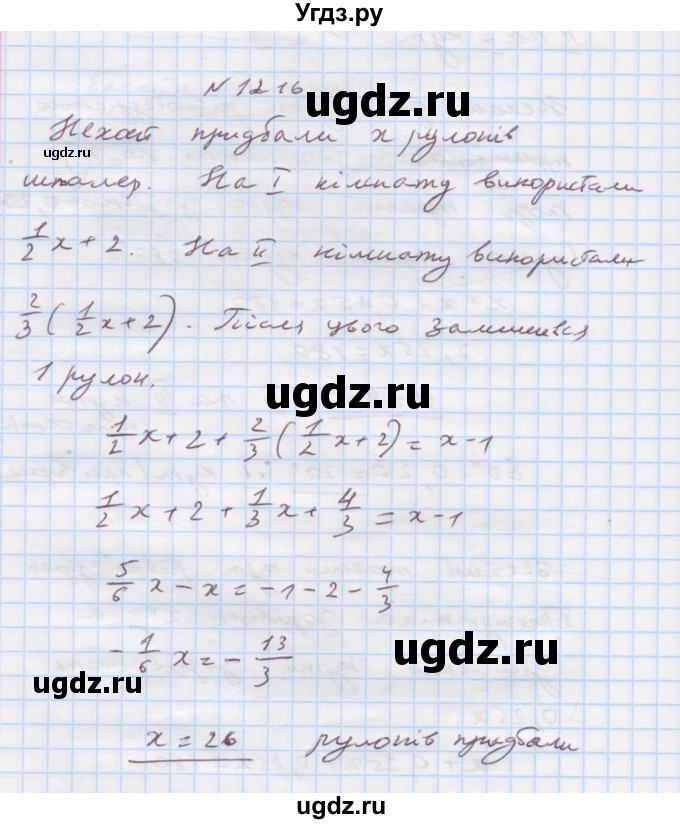 Угдз.ру
N 1216
ugdz.ru
Нехай придбали x рулонів
ugdz.ru
шпалер. На I кімнату використали
1/2 x + 2. На II кімнату використали
2/3 (1/2 x + 2). Після цього залишився
1 рулон.
ugdz.ru
1/2 x + 2 + 2/3 (1/2 x + 2) = x - 1
1/2 x + 2 + 1/3 x + 4/3 = x - 1
5/6 x - x = -1 - 2 - 4/3
ugdz.ru
- 1/6 x = - 13/3
ugdz.ru
x = 26 рулонів придбали
ugdz.ru
ugdz.ru